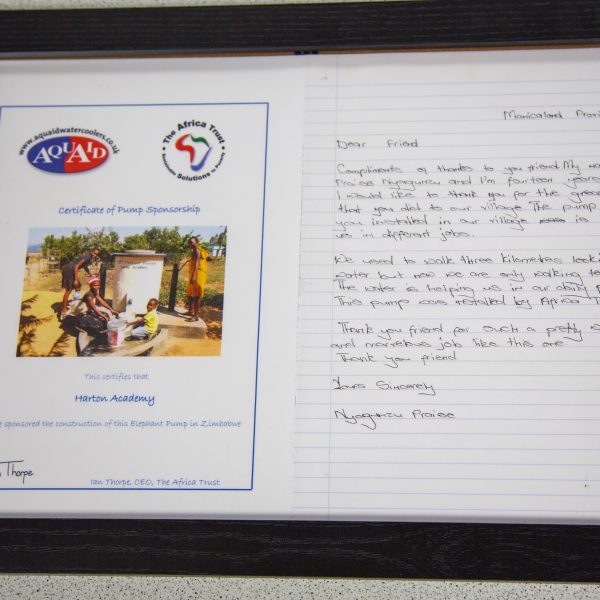 www.aquaidwatercoolers.co.uk
AQUAID
The Africa Trust
Solutions to Poverty
Certificate of Pump Sponsorship
This certifies that
Harton Academy
sponsored the construction of this Elephant Pump in Zimbabwe
Thorpe
Ian Thorpe, CEO, The Africa Trust
Manicaland
Dear Friend
Compliments of thanks to you friend. My
Praise Nyagunzu and I'm fourteen years
I would like to thank you for the
that you did to our village. The pump
you installed in our village is
us in different jobs.
We used to walk three kilometres
water but now we are only walking
The water is helping us in our
This pump was installed by Africa
Thank you friend for such a pretty
and marvelous job like this one.
Thank you friend
Yours Sincerely
Nyagunzu Praise